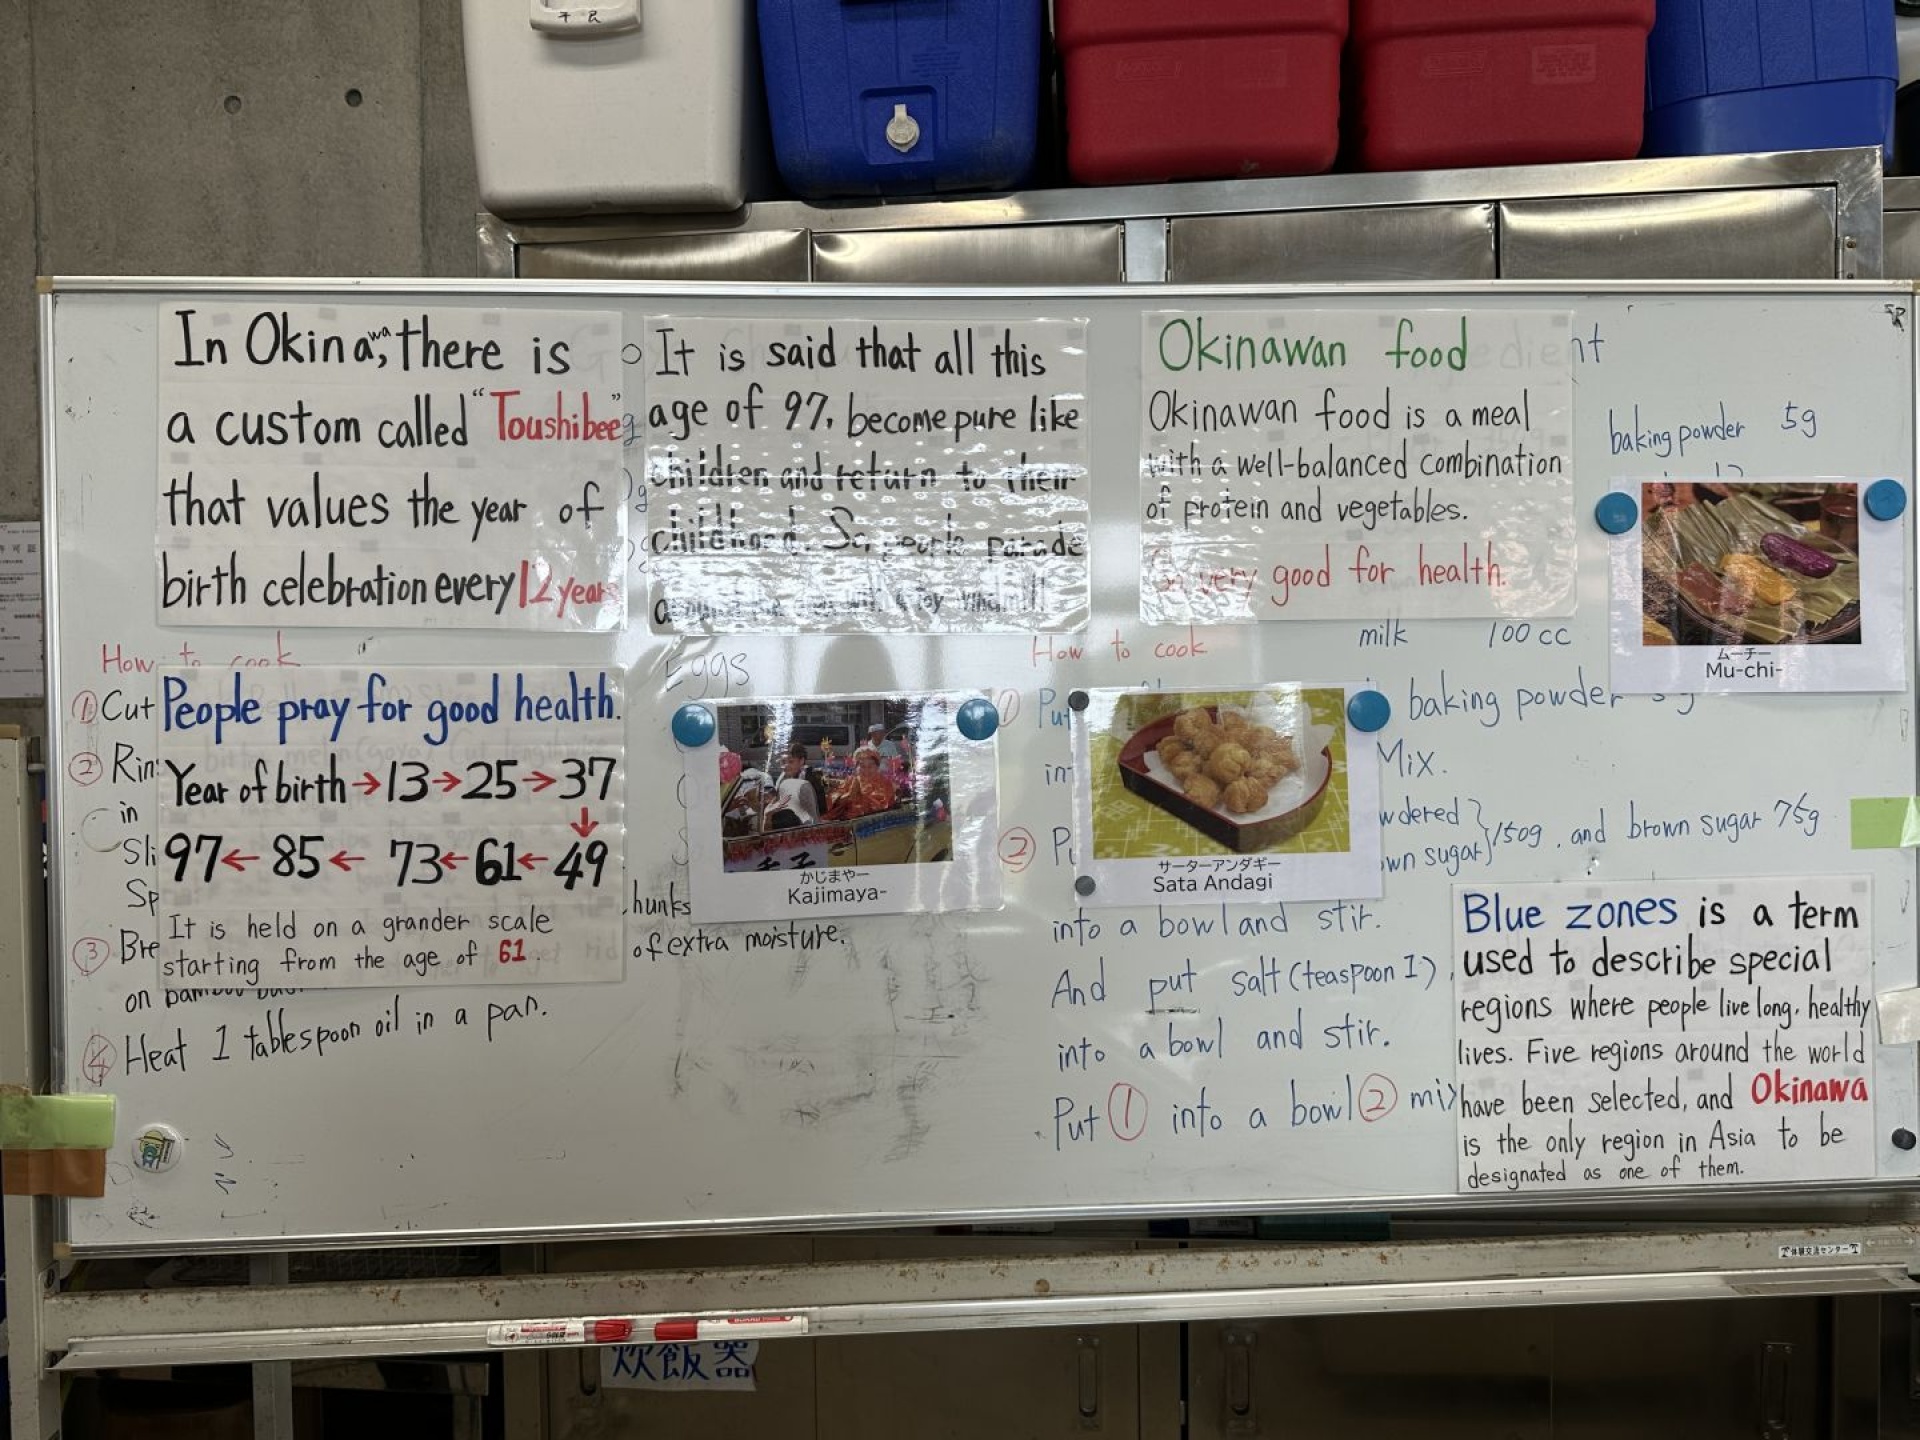 In Okinawa, there is
a custom called "Toushibee"
that values the year of
birth celebration every 12 years
People pray for good health.
Year of birth → 13 → 25 → 37
↓
97 ← 85 ← 73 ← 61 ← 49
It is held on a grander scale
starting from the age of 61.
It is said that all this
age of 97, become pure like
children and return to their
childhood. So, people parade
around the area with a toy windmill
Okinawan food
Okinawan food is a meal
with a well-balanced combination
of protein and vegetables.
So very good for health.
baking powder 5g
ムーチー
Mu-chi-
How to cook
① Cut
②
in
③
on bamboo
④ Heat 1 tablespoon oil in a pan.
Eggs
かじまやー
Kajimaya-
hunks
of extra moisture.
How to cook
milk 100cc
①
baking powder
Mix.
②
150g, and brown sugar 75g
サーターアンダギー
Sata Andagi
into a bowl and stir.
And put salt (teaspoon 1)
into a bowl and stir.
Put ① into a bowl ② mix
Blue zones is a term
used to describe special
regions where people live long, healthy
lives. Five regions around the world
have been selected, and Okinawa
is the only region in Asia to be
designated as one of them.
体験交流センター
炊飯器